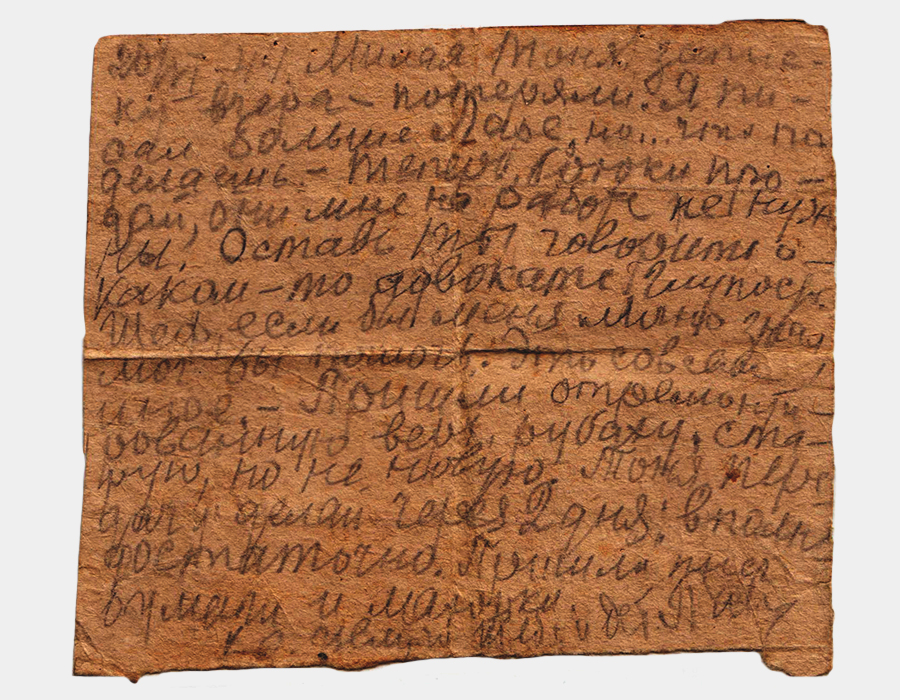 20/VI 44. Милая Тоня, запис-
ку вчера – потеряли. Я пи-
сал больше Лаве, но.. что по
делаешь. – Теперь, про-
дай, они мне на работе не нуж
ны. Оставь ты говорить о
каком-то адвокате! Глупость
Шеф, если бы меня лично знал
мог бы помочь. Это совсем
иное. – Пошли отремонти-
рованную верх. рубаху, ста-
рую, но не новую. Тоня, пере
дачу делай через 2 дня, вполне
достаточно. Пришли
бумаги и марочки.